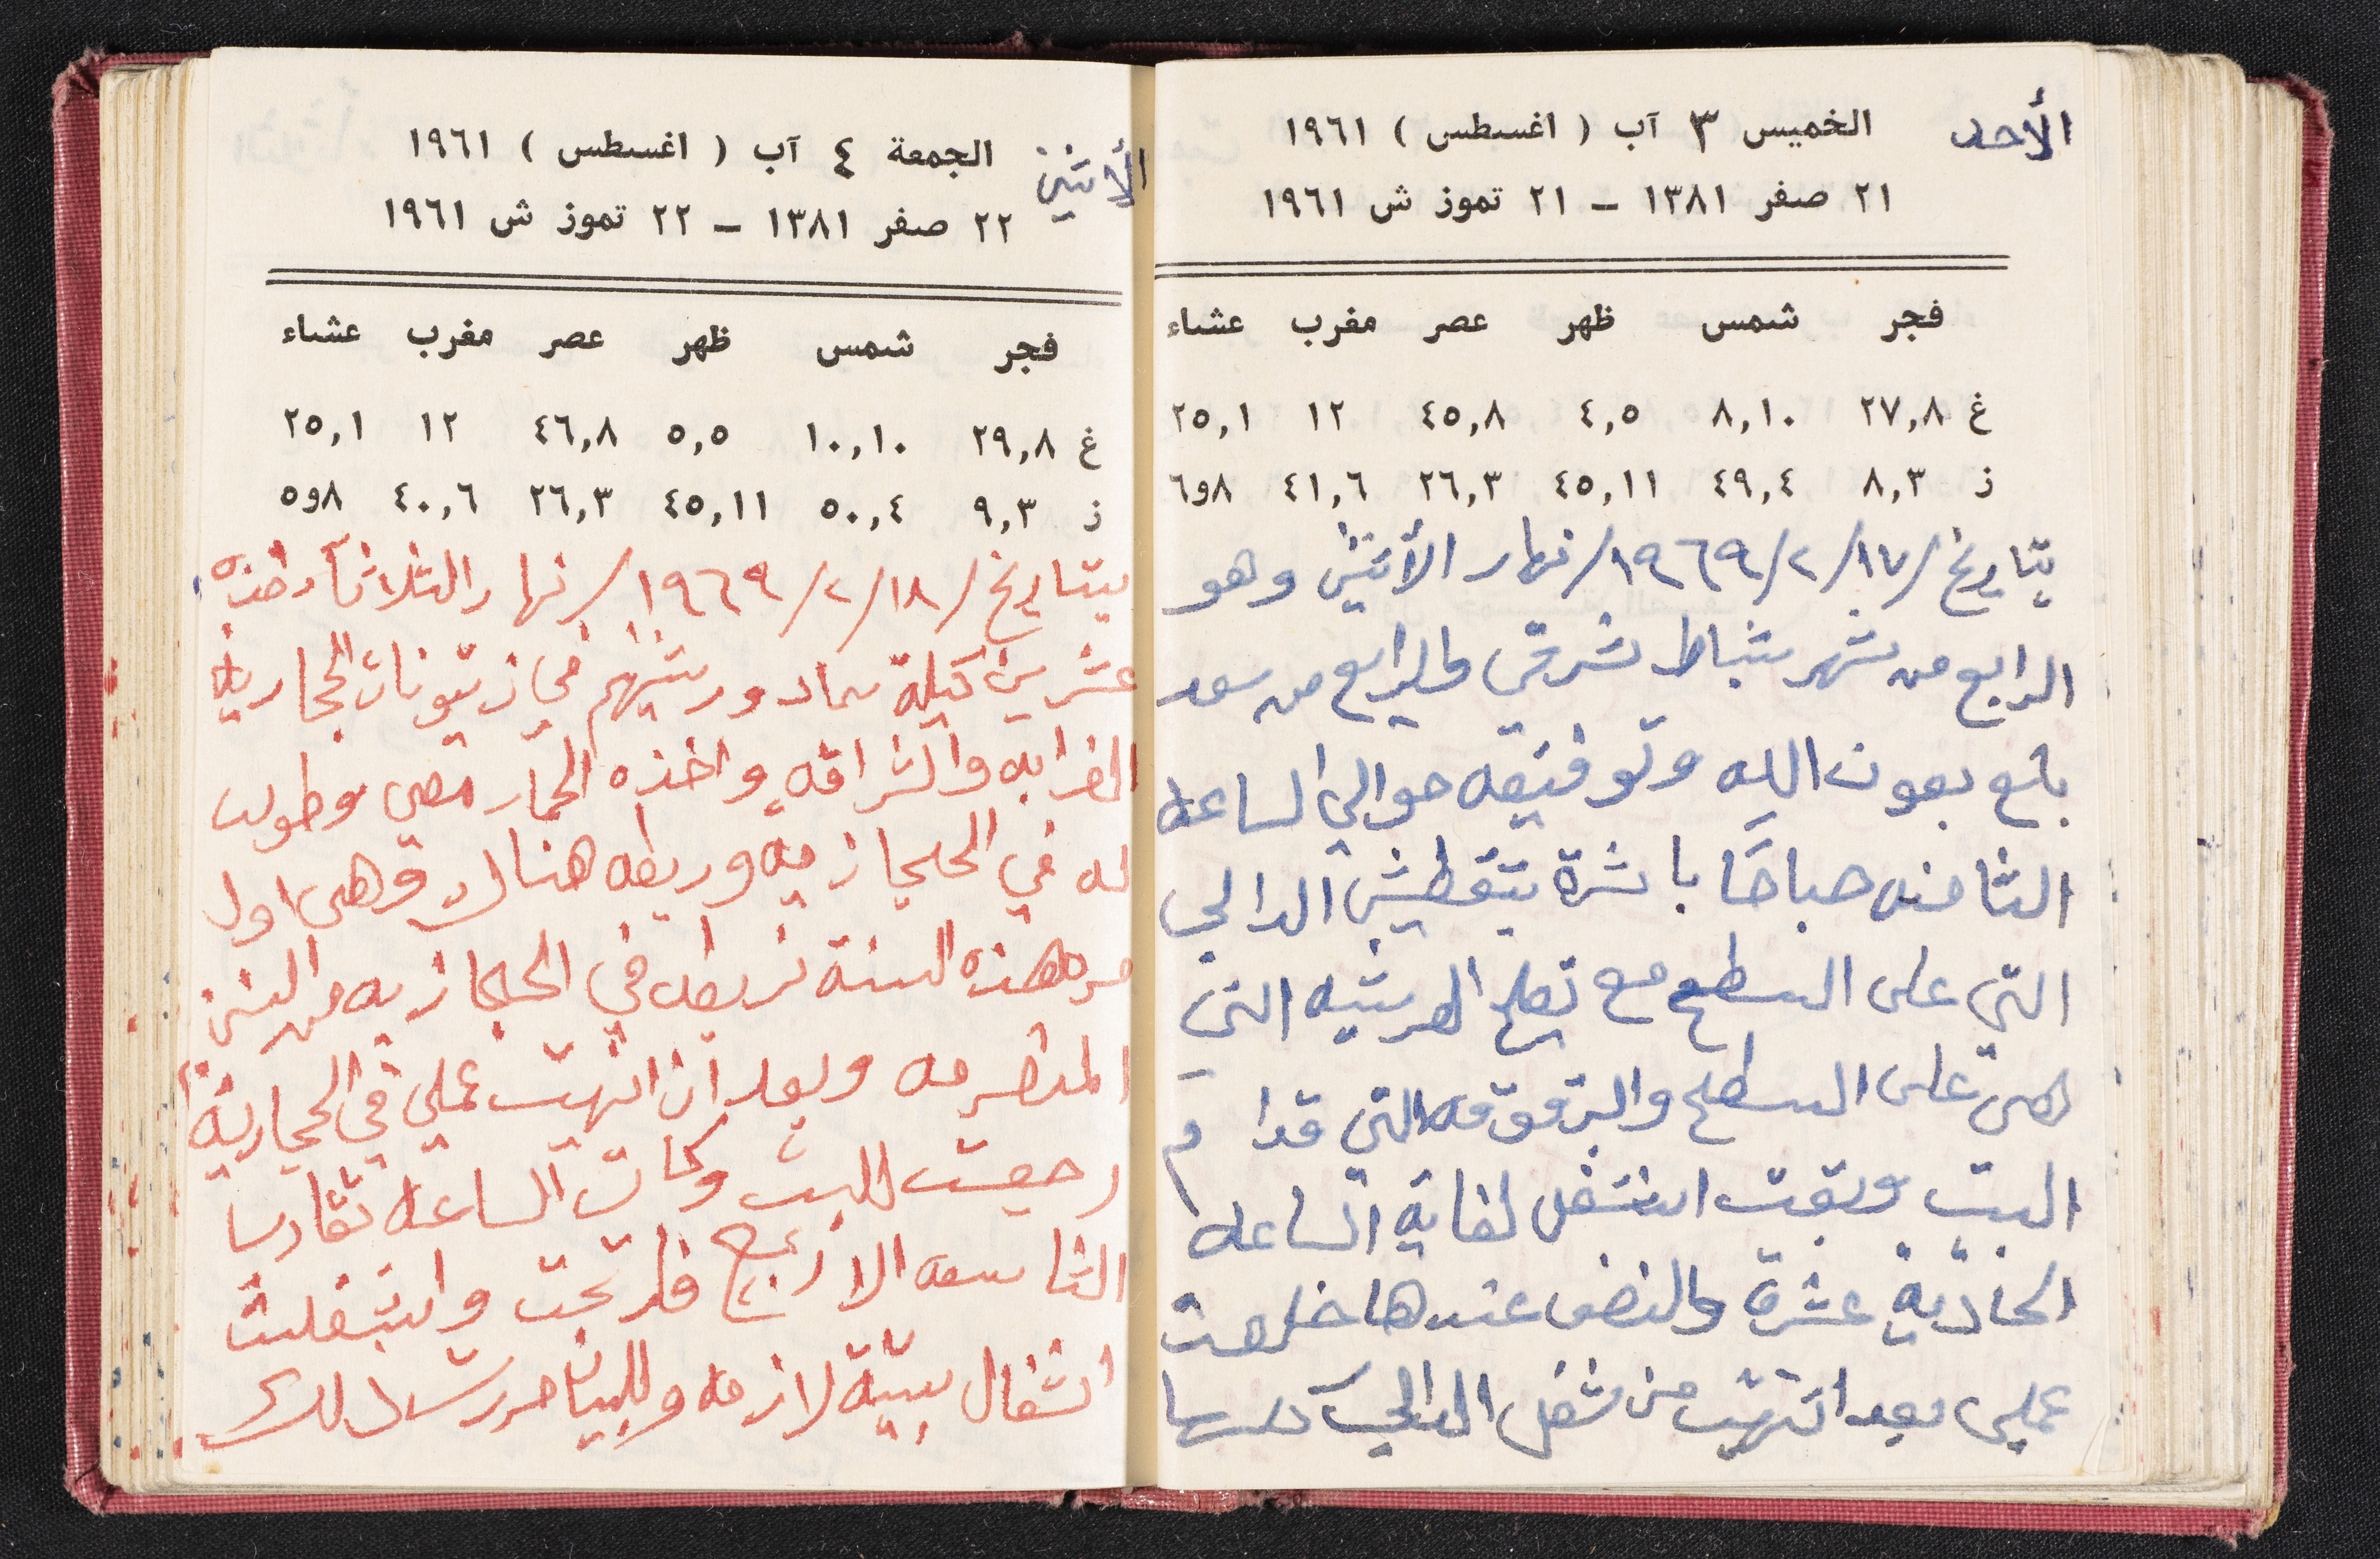 الأحد
الخميس ٣ آب ( اغسطس ) ١٩٦١
٢١ صفر ١٣٨١ – ٢١ تموز ش ١٩٦١
فجر شمس ظهر عصر مغرب عشاء
غ ٢٧,٨ ٨,١٠ ٤,٥ ٤٥,٨ ١٢ ٢٥,١
ز ٨,٣ ٤٩,٤ ٤٥,١١ ٢٦,٣ ٤١,٦ ٨و٦
بتاريخ /١٧/ ٢/ ١٩٦٩/ نهار الأثنين وهو
الرابع من شهر شباط شرقي والرابع من سعد
بلع بعون الله وتوفيقه حوالي الساعه
الثامنه صباحًا باشرة بتقطيش الدالي
التي على السطح مع تصليح العريشه التي
هي على السطح والبرقوقه التي قدام
البيت وبقيت اشتغل لغاية الساعه
الحادية عشرة والنصف عندها خلصت
عملي بعد انتهيت من شغل الدالي
الأثنين
الجمعة ٤ آب ( اغسطس ) ١٩٦١
٢٢ صفر ١٣٨١ – ٢٢ تموز ش ١٩٦١
فجر شمس ظهر عصر مغرب عشاء
غ ٢٩,٨ ١٠,١٠ ٥,٥ ٤٦,٨ ١٢ ٢٥,١
ز ٩,٣ ٥٠,٤ ٤٥,١١ ٢٦,٣ ٤٠,٦ ٨و٥
بتاريخ /١٨/ ٢/ ١٩٦٩/ نهار الثلاثاء اخذه
عشرين كيلة سماد ورشيتهم في زيتونات الحجارية
الغرابه والشراقه واخذه الحمار معي وطولت
له في الحجازيه وربطه هناك وهي اول
مره هذه السنة نربطه في الحجازيه من السنين
المنصرمه وبعد ان انهيت عملي في الحجارية
رجعت للبيت وكانت الساعه تقارب
التاسعه الا ربع فارتحت واشتغلت
اشغال بيتية لازمه وللبيان حررت ذلك